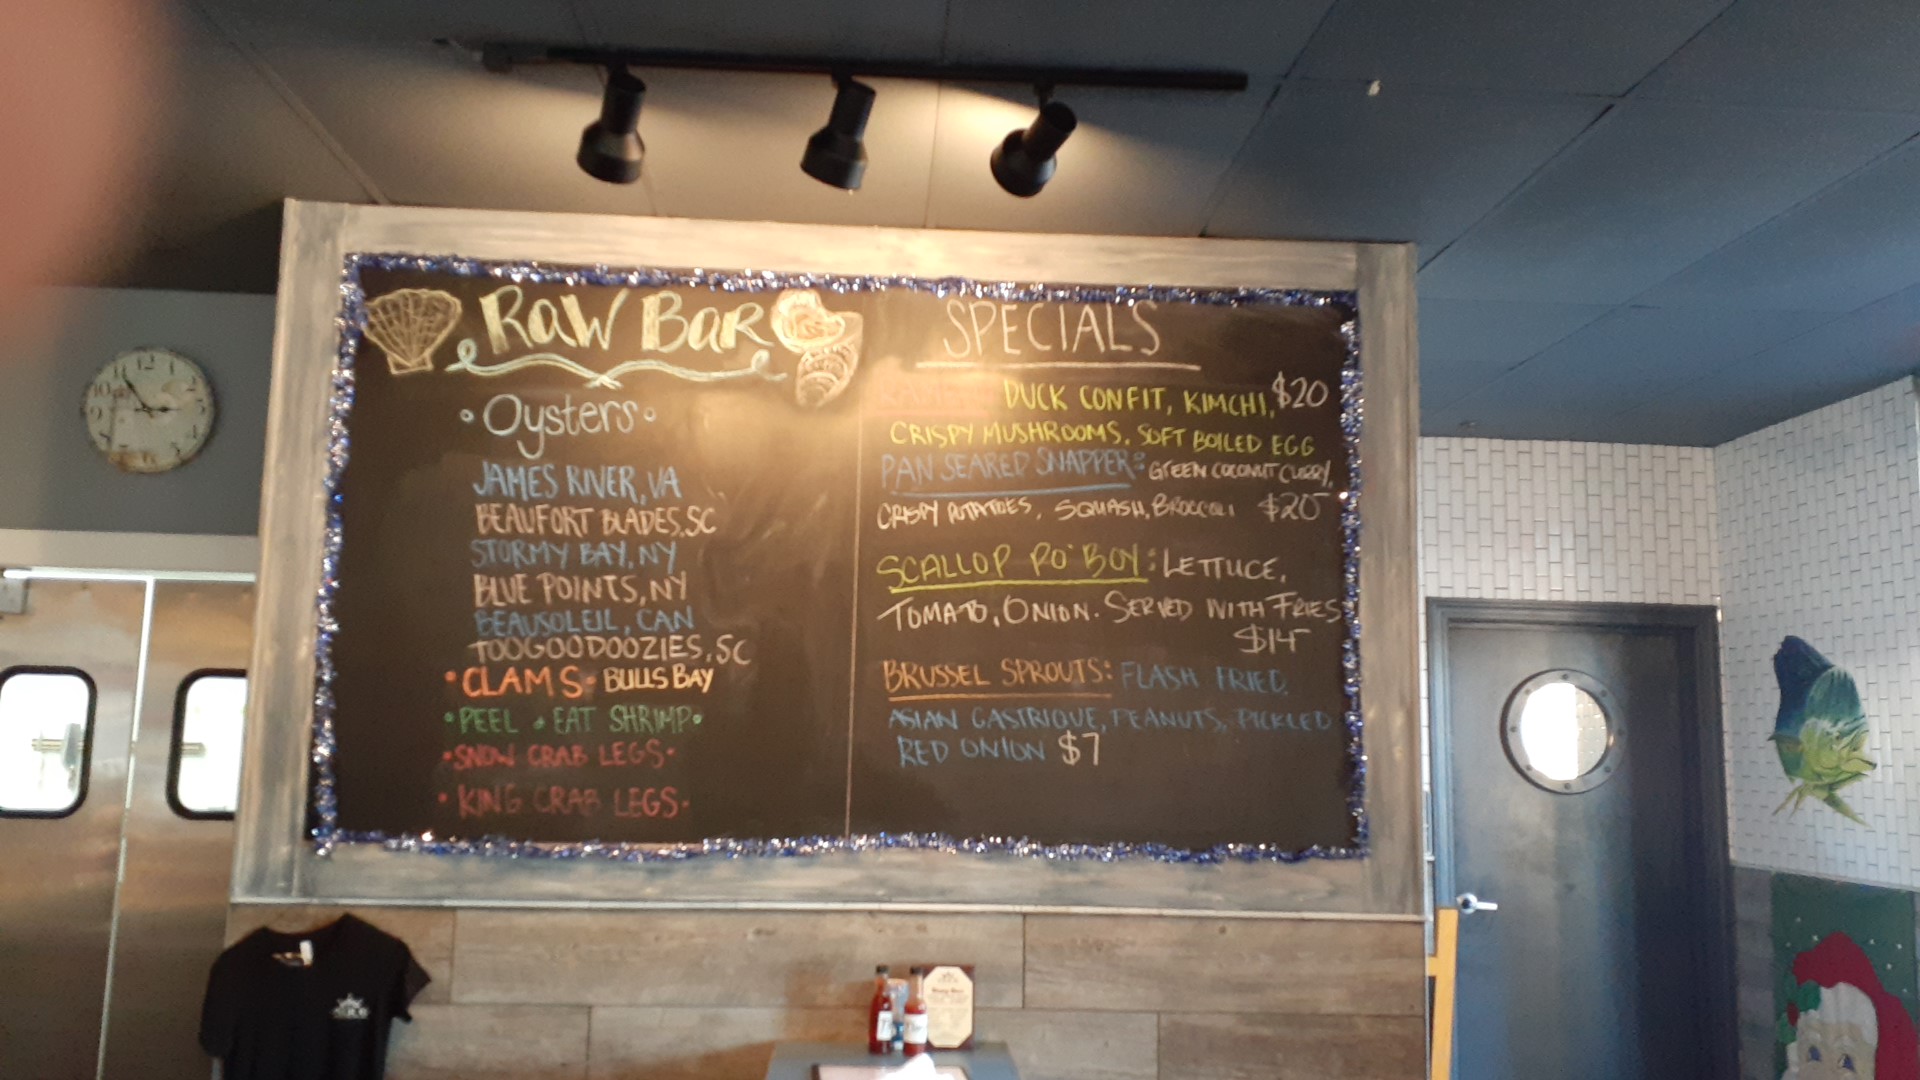 RAW BAR
• Oysters •
JAMES RIVER, VA
BEAUFORT BLADES, SC
STORMY BAY, NY
BLUE POINTS, NY
BEAUSOLEIL, CAN
TOOGOODOOZIES, SC
• CLAMS • BULLS BAY
• PEEL • EAT SHRIMP •
• SNOW CRAB LEGS •
• KING CRAB LEGS •
SPECIALS
DUCK CONFIT, KIMCHI, $20
CRISPY MUSHROOMS, SOFT BOILED EGG
PAN SEARED SNAPPER: GREEN COCONUT CURRY,
CRISPY POTATOES, SQUASH, BROCCOLI $20
SCALLOP PO' BOY: LETTUCE,
TOMATO, ONION. SERVED WITH FRIES
$14
BRUSSEL SPROUTS: FLASH FRIED,
ASIAN GASTRIQUE, PEANUTS, PICKLED
RED ONION $7